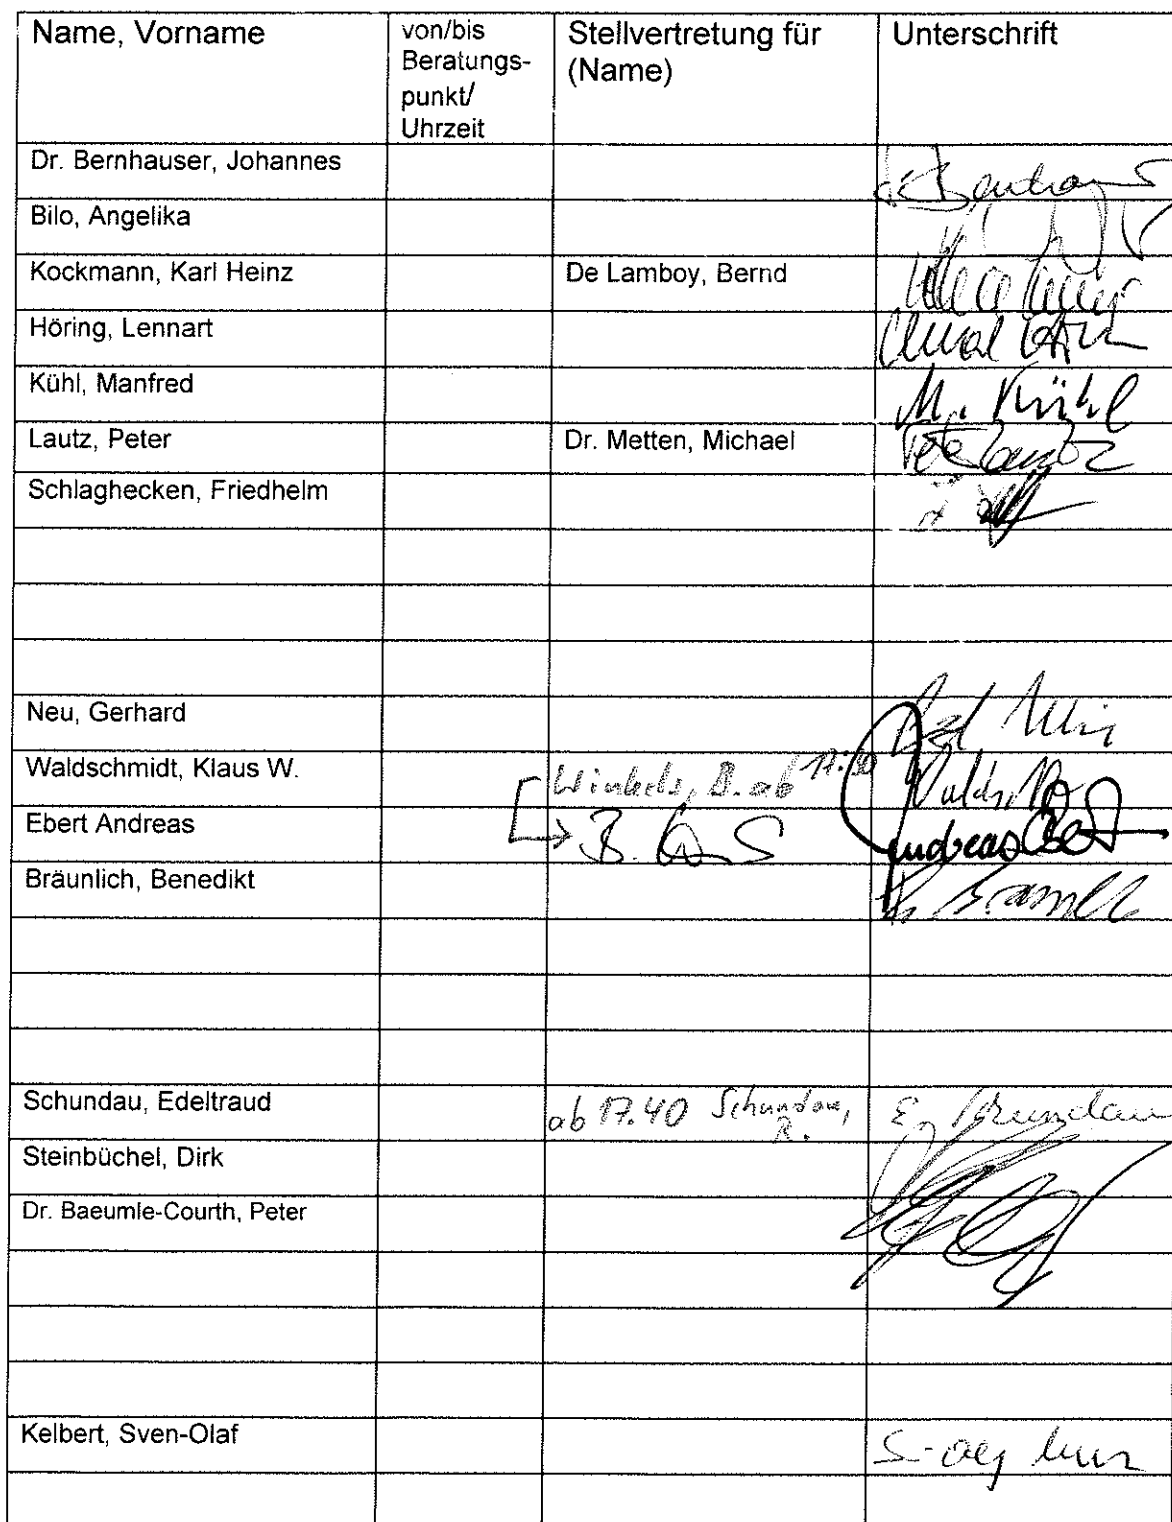 Name, Vorname
von/bis
Beratungs-
punkt/
Uhrzeit
Stellvertretung für
(Name)
Unterschrift
Dr. Bernhauser, Johannes
Bilo, Angelika
Kockmann, Karl Heinz
De Lamboy, Bernd
Höring, Lennart
Kühl, Manfred
M. Kühl
Lautz, Peter
Dr. Metten, Michael
Schlaghecken, Friedhelm
Neu, Gerhard
Waldschmidt, Klaus W.
Winkels, B. ab 17:30
Ebert Andreas
Andreas Ebert
Bräunlich, Benedikt
Schundau, Edeltraud
ab 17.40 Schundau,
R.
E. Schundau
Steinbüchel, Dirk
Dr. Baeumle-Courth, Peter
Kelbert, Sven-Olaf